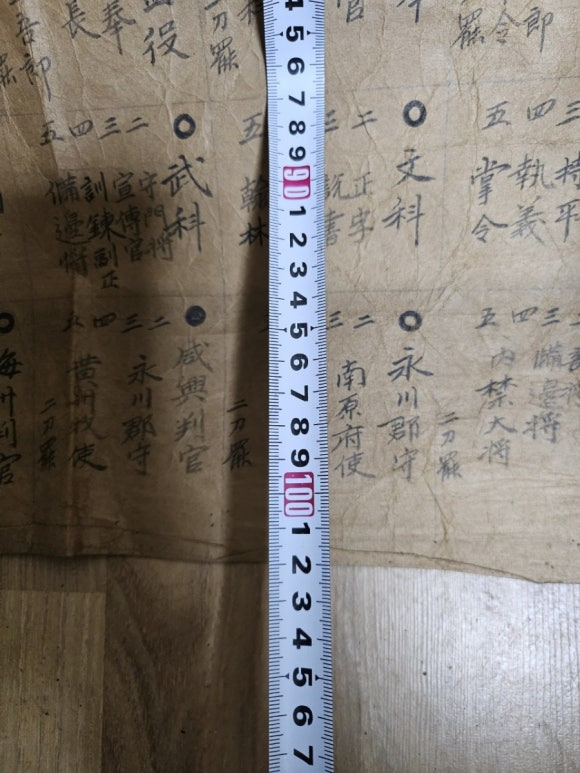 郎
令
罷
官
刀罷
役
奉
長
吾郎
罷
三 持平
四 執義
五 掌令
○ 文科
二 正字
三 説書
五 翰林
○ 武科
二 守門將
三 宣傳官
四 訓鍊副正
五 備邊將
三 備邊將
四
五 內禁大將
二刀罷
○ 永川郡守
二
三 南原府使
二刀罷
咸興判官
二
三 永川郡守
四
五 黃州牧使
二刀罷
○ 海州判官
4
5
6
7
8
9
90
1
2
3
4
5
6
7
8
9
100
1
2
3
4
5
6
7